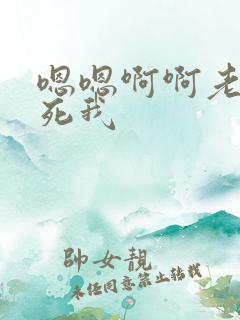 嗯嗯啊啊老
死我
帥女靚
未经同意禁止转载